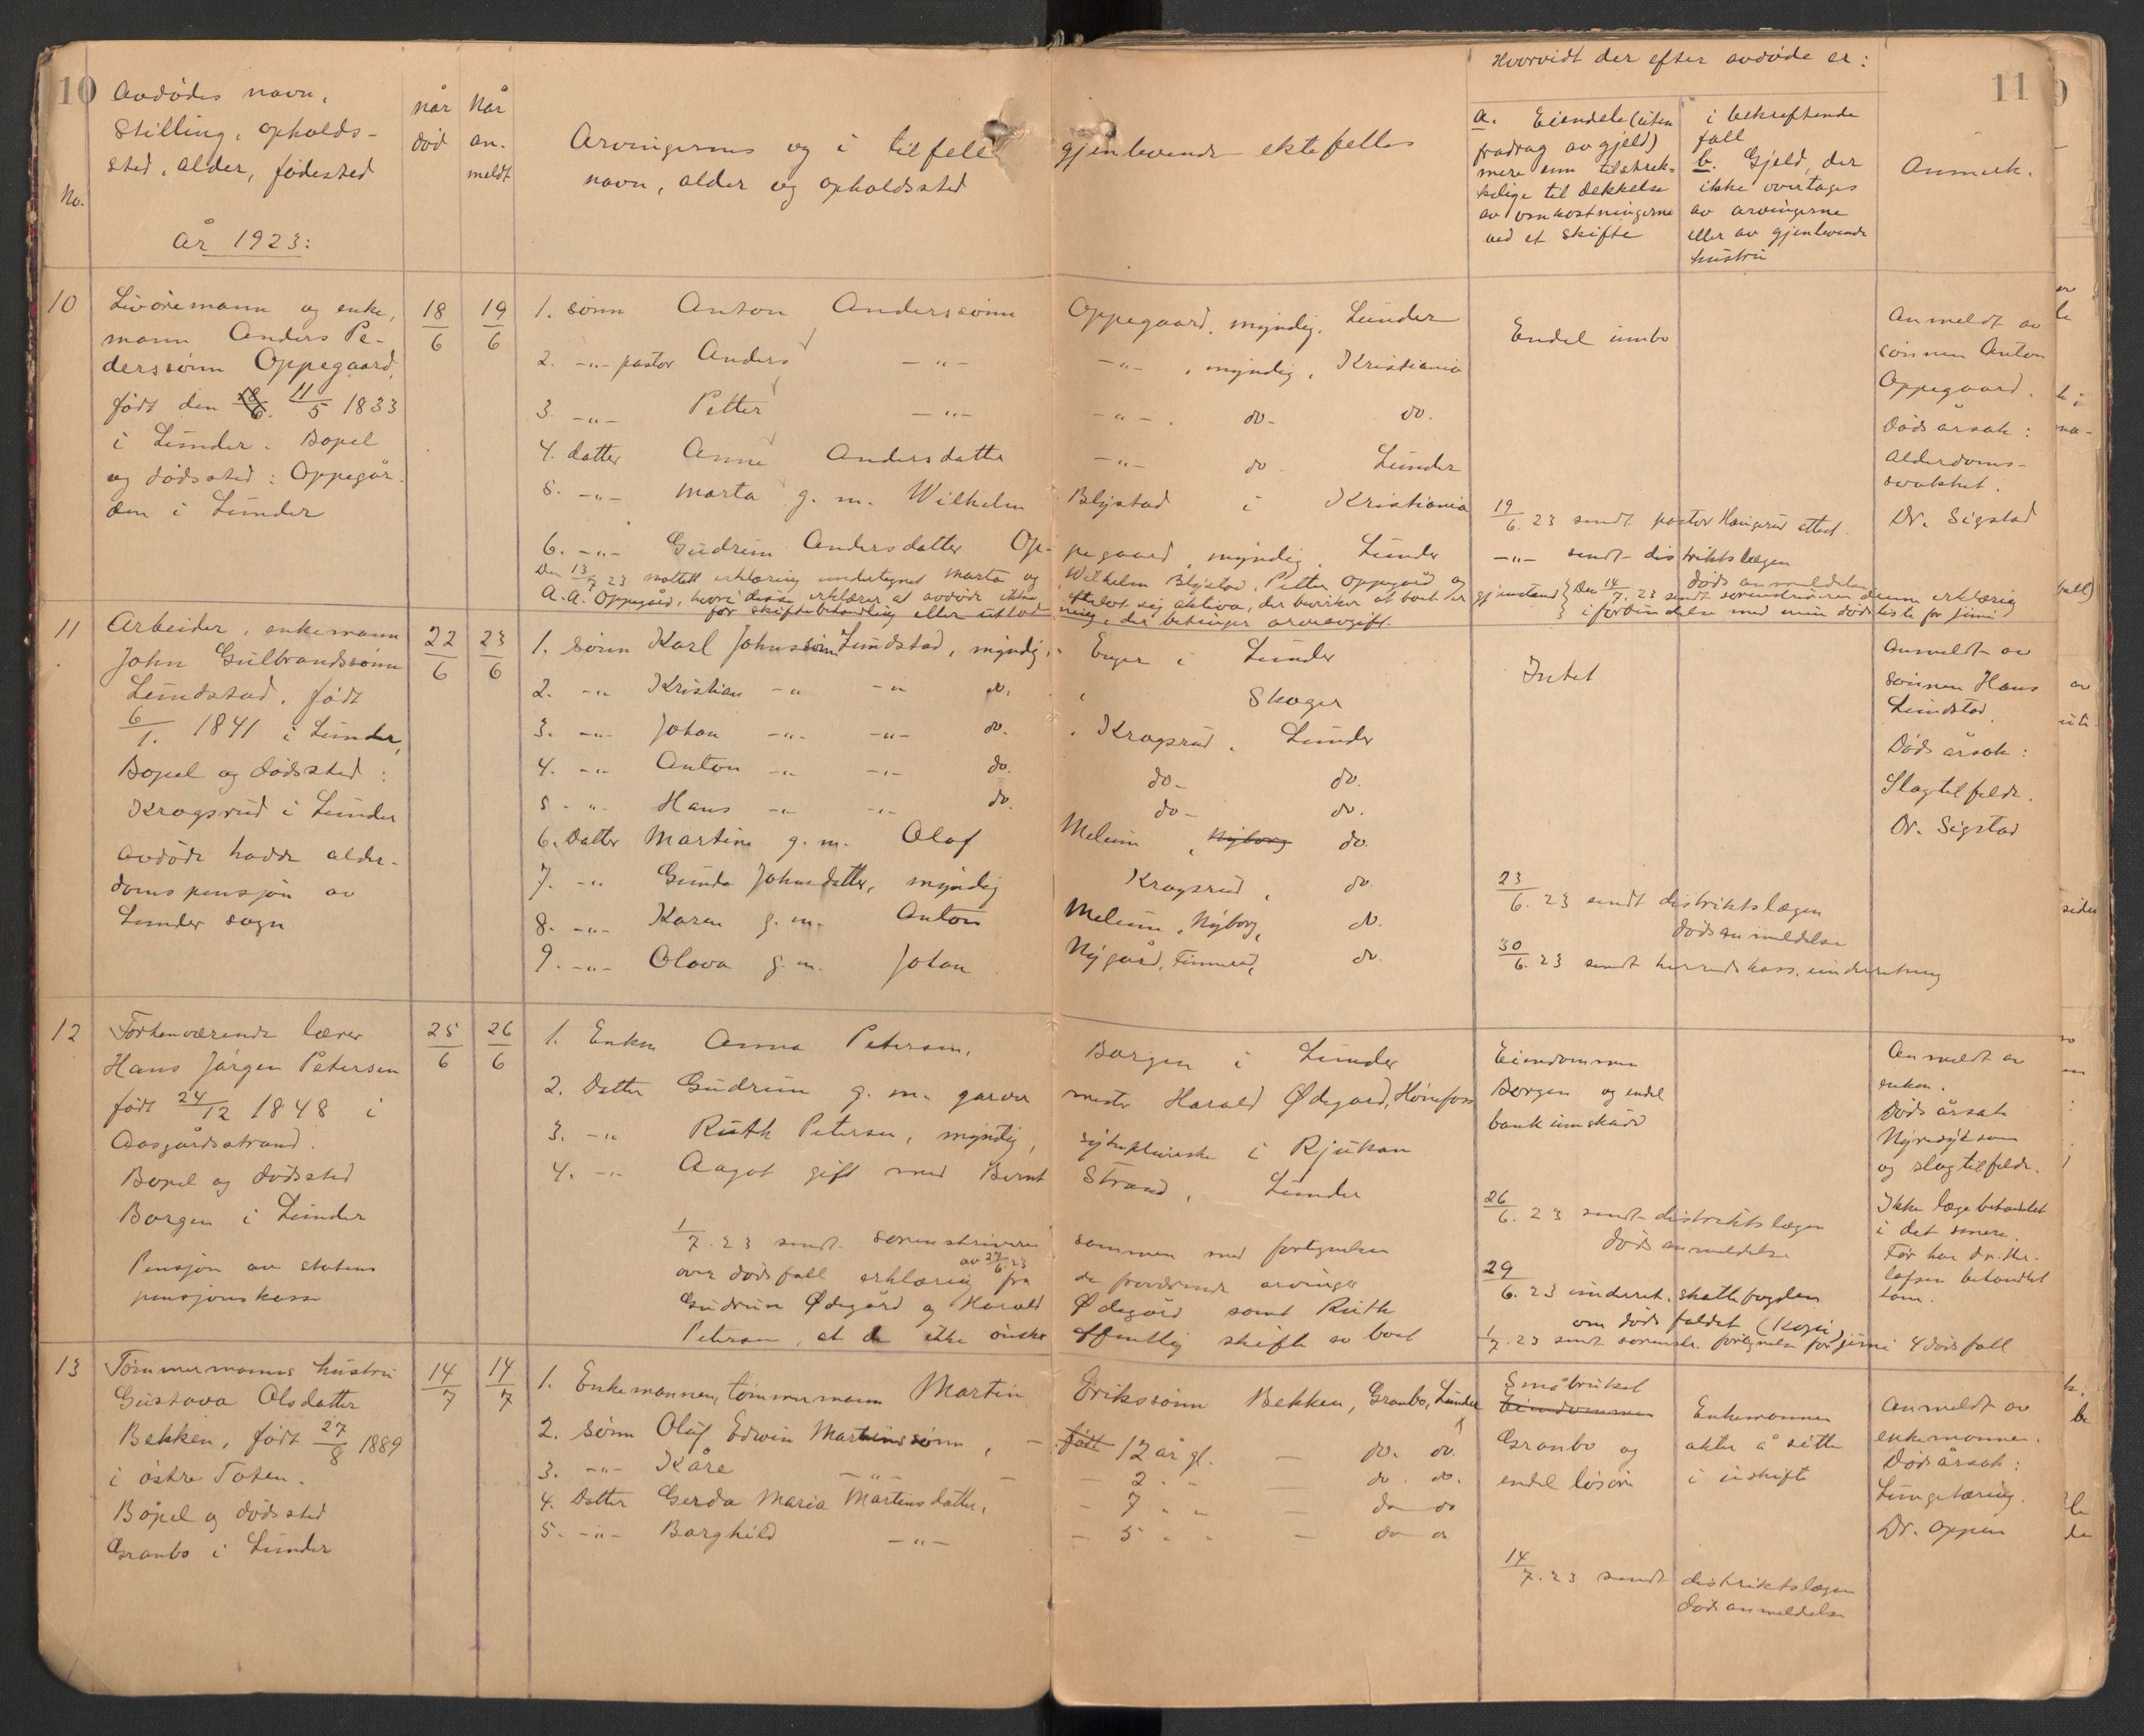 10
11
No.
Avdødes navn,
Stilling, opholds-
sted, alder, fødested
År 1923:
når
død
Når
an-
meldt
Arvingernes og i tilfelle gjenlevende ektefelles
navn, alder og opholdssted
Hvorvidt der efter avdøde er:
a. Eiendele (uten
fradrag av gjeld)
mere enn tilstrek-
kelige til dekkelse
av omkostningerne
ved et skifte
i bekreftende
fall
b. Gjeld, der
ikke overtages
av arvingerne
eller av gjenlevende
hustru
Anmerk.
10
Livøremann og enke,
mann Anders Pe-
derssønn Oppegaard,
født den 11/5 1833
i Lunder. Bopel
og dødssted: Oppegår-
den i Lunder
18/6
19/6
1. sønn Anton Anderssønn Oppegaard, myndig, Lunder
2. -"- pastor Anders -"- -"- , myndig, Kristiania
3. -"- Petter -"- -"- . do. do.
4. datter Anne Andersdatter -"- do Lunder
5. -"- Marta g. m. Wilhelm Blystad i Kristiania
6. -"- Gudrun Andersdatter Oppegaard, myndig, Lunder
Den 13/7 23 mottatt erklæring undertegnet Marta og Wilhelm Blystad, Petter Oppegård og
A. A. Oppegård, hvori disse erklærer at avdøde ikke efterlot sig aktiva, der bevirker at boet er gjenstand
for skiftebehandling eller utlodning, der betinger arveavgift.
Endel innbo
19/6. 23 sendt pastor Haugerud attest.
-"- sendt distriktslægen
dødsanmeldelse
Den 14/7. 23 sendt sorenskriveren denne erklæring
i forbindelse med min dødsliste for juni
Anmeldt av
sønnen Anton
Oppegaard.
Dødsårsak:
Alderdoms-
svakhet.
Dr. Sigstad
11
Arbeider, enkemann
John Gulbrandssønn
Lundstad, født
6/1. 1841 i Lunder,
Bopel og dødssted:
Kragsrud i Lunder
Avdøde hadde alder-
domspensjon av
Lunder sogn
22/6
23/6
1. sønn Karl Johnssønn Lundstad, myndig, Enger i Lunder
2. -"- Kristian -"- -"- do. , Skoger
3. -"- Johan -"- -"- do. , Kragsrud, Lunder
4. -"- Anton -"- -"- do. do- do.
5 -"- Hans -"- -"- do. do- do.
6. Datter Martine g. m. Olaf Melum , Nyborg do.
7. -"- Gunda Johnsdatter, myndig Kragsrud, do.
8. -"- Karen g. m. Anton Melum, Nyborg, do.
9. -"- Olava g. m. Johan Nygård, Finnerud, do.
Intet
23/6. 23 sendt distriktslægen
dødsanmeldelse
30/6. 23 sendt herredskass. underretning
Anmeldt av
sønnen Hans
Lundstad.
Dødsårsak:
Slagtilfelde.
Dr. Sigstad
12
Forhenværende lærer
Hans Jørgen Petersen
født 24/12 1848 i
Aasgårdsstrand.
Bopel og dødssted
Borgen i Lunder
Pensjon av statens
pensjonskasse
25/6
26/6
1. Enken Anna Petersen, Borgen i Lunder
2. Datter Gudrun g. m. garvermester Harald Ødegard, Hønefoss
3. -"- Ruth Petersen, myndig, sykepleierske i Rjukan
4. -"- Aagot gift med Bernt Strand, Lunder
1/7. 23 sendt sorenskriveren sammen med fortegnelsen
over dødsfall erklæring av 27/6 23 fra de arvinger
Gudrun Ødegård og Harald Ødegård samt Ruth
Petersen, at de ikke ønsker offentlig skifte av boet
Eiendommen
Borgen og endel
bankinnskudd
26/6. 23 sendt distriktslægen
dødsanmeldelse
29/6. 23 underret. skattefogden
om dødsfaldet (Kopi)
1/7. 23 sendt sorenskr. fortegnelse for juni 4 dødsfall
Anmeldt av
enken.
Dødsårsak
Nyresykdom
og slagtilfelde.
Ikke lægebehandlet
i det senere.
Før har dr. The-
lefsen behandlet
ham.
13
Tømmermanns hustru
Gustava Olsdatter
Bekken, født 27/8 1889
i østre Toten.
Bopel og dødssted
Granbo i Lunder
14/7
14/7
1. Enkemannen, tømmermann Martin Erikssønn Bekken, Granbo, Lunder
2. Sønn Oluf Edwin Martinssønn, - født 12 år gl. - do. do.
3. -"- Kåre -"- - 2 - " - do. do.
4. Datter Gerda Maria Martinsdatter, - 7 - " - do do
5. -"- Borghild -"- - 5 - " - do do
Småbruket
Eiendommen
Granbo og
endel løsøre
Enkemannen
akter å sitte
i uskifte
14/7. 23 sendt distriktslægen
dødsanmeldelse
Anmeldt av
enkemannen.
Dødsårsak:
Lungetæring.
Dr. Oppen